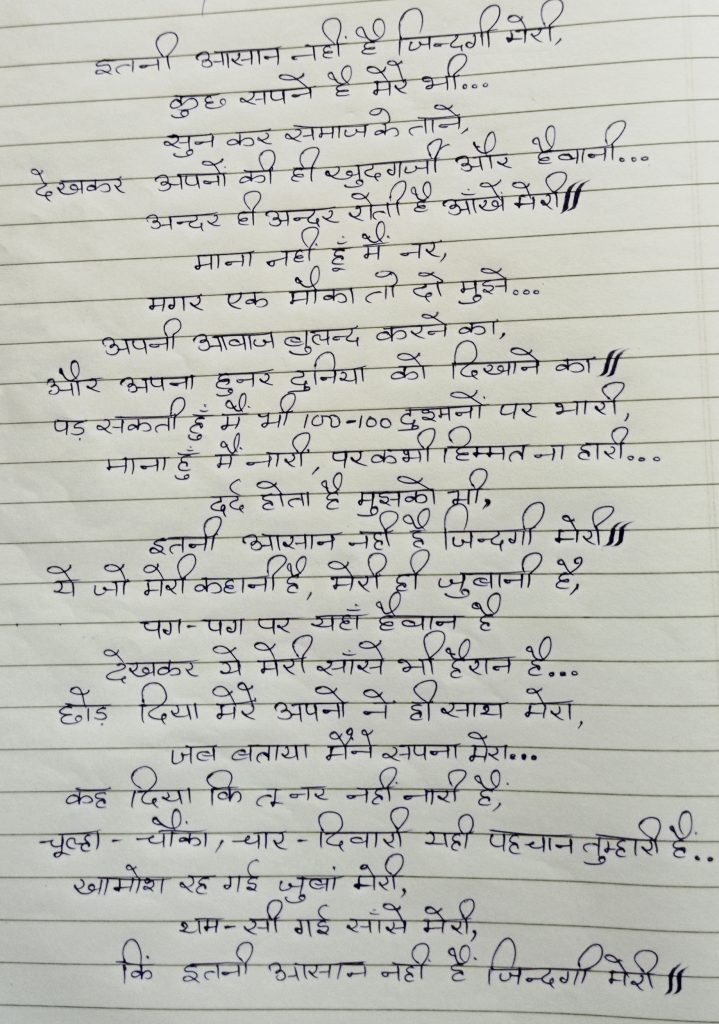 इतनी आसान नहीं है जिन्दगी मेरी,
कुछ सपने है मेरे भी...
सुन कर समाज के ताने,
देखकर अपनों की ही खुदगर्जी और हैवानी...
अन्दर ही अन्दर रोती है आँखें मेरी॥
माना नहीं हूँ मैं नर,
मगर एक मौका तो दो मुझे...
अपनी आवाज बुलन्द करने का,
और अपना हुनर दुनिया को दिखाने का॥
पड़ सकती हुँ मैं भी 100-100 दुश्मनों पर भारी,
माना हुँ मैं नारी, पर कभी हिम्मत ना हारी...
दर्द होता है मुझको भी,
इतनी आसान नही है जिन्दगी मेरी॥
ये जो मेरी कहानी है, मेरी ही जुबानी है,
पग-पग पर यहाँ हैवान है
देखकर ये मेरी साँसे भी हैरान है...
छोड़ दिया मेरे अपनो ने ही साथ मेरा,
जब बताया मैंने सपना मेरा...
कह दिया कि तू नर नहीं नारी है,
चूल्हा - चौंका, चार - दिवारी यही पहचान तुम्हारी है..
खामोश रह गई जुबां मेरी,
थम-सी गई साँसे मेरी,
कि इतनी आसान नहीं है जिन्दगी मेरी॥